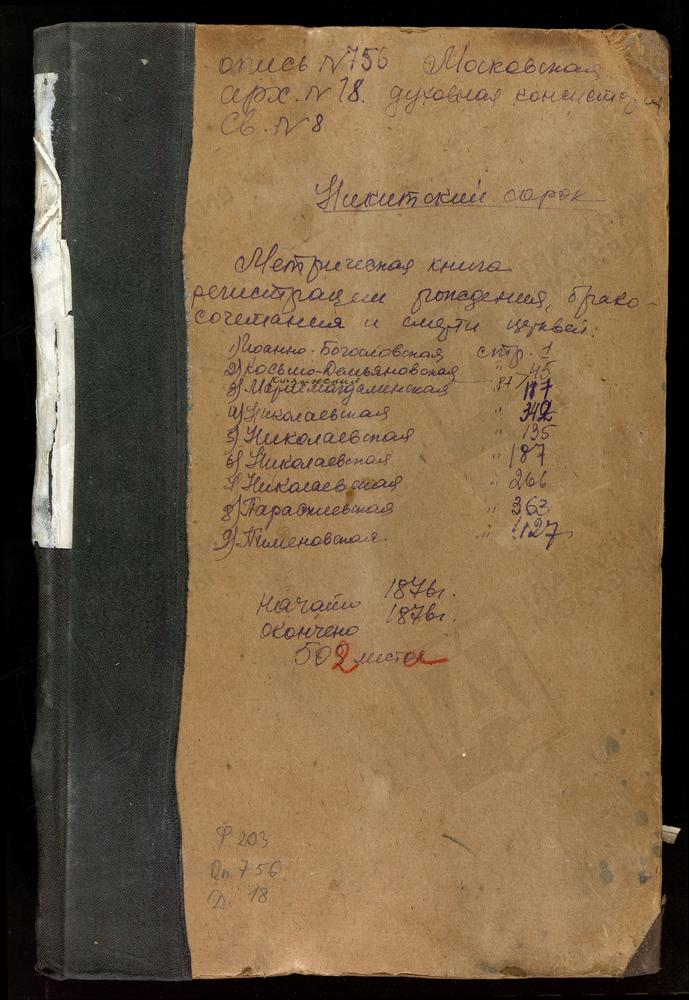 опись №756 Московская
арх. №18. духовная консистория
Св. №8
Никитский сорок
Метрическая книга
регистрации рождения, брако-
сочетания и смерти церквей:
1) Иоанно-Богословская стр. 1
2) Косьмо-Демьяновская " 45
3) Мариемагдалинская " 87
4) Николаевская " 342
5) Николаевская " 135
6) Николаевская " 187
7) Николаевская " 266
8) Параскиевская " 363
9) Пименовская " 427
Начато 1876г.
окончено 1876г.
502 листа
Ф 203
Оп. 756
Д. 18